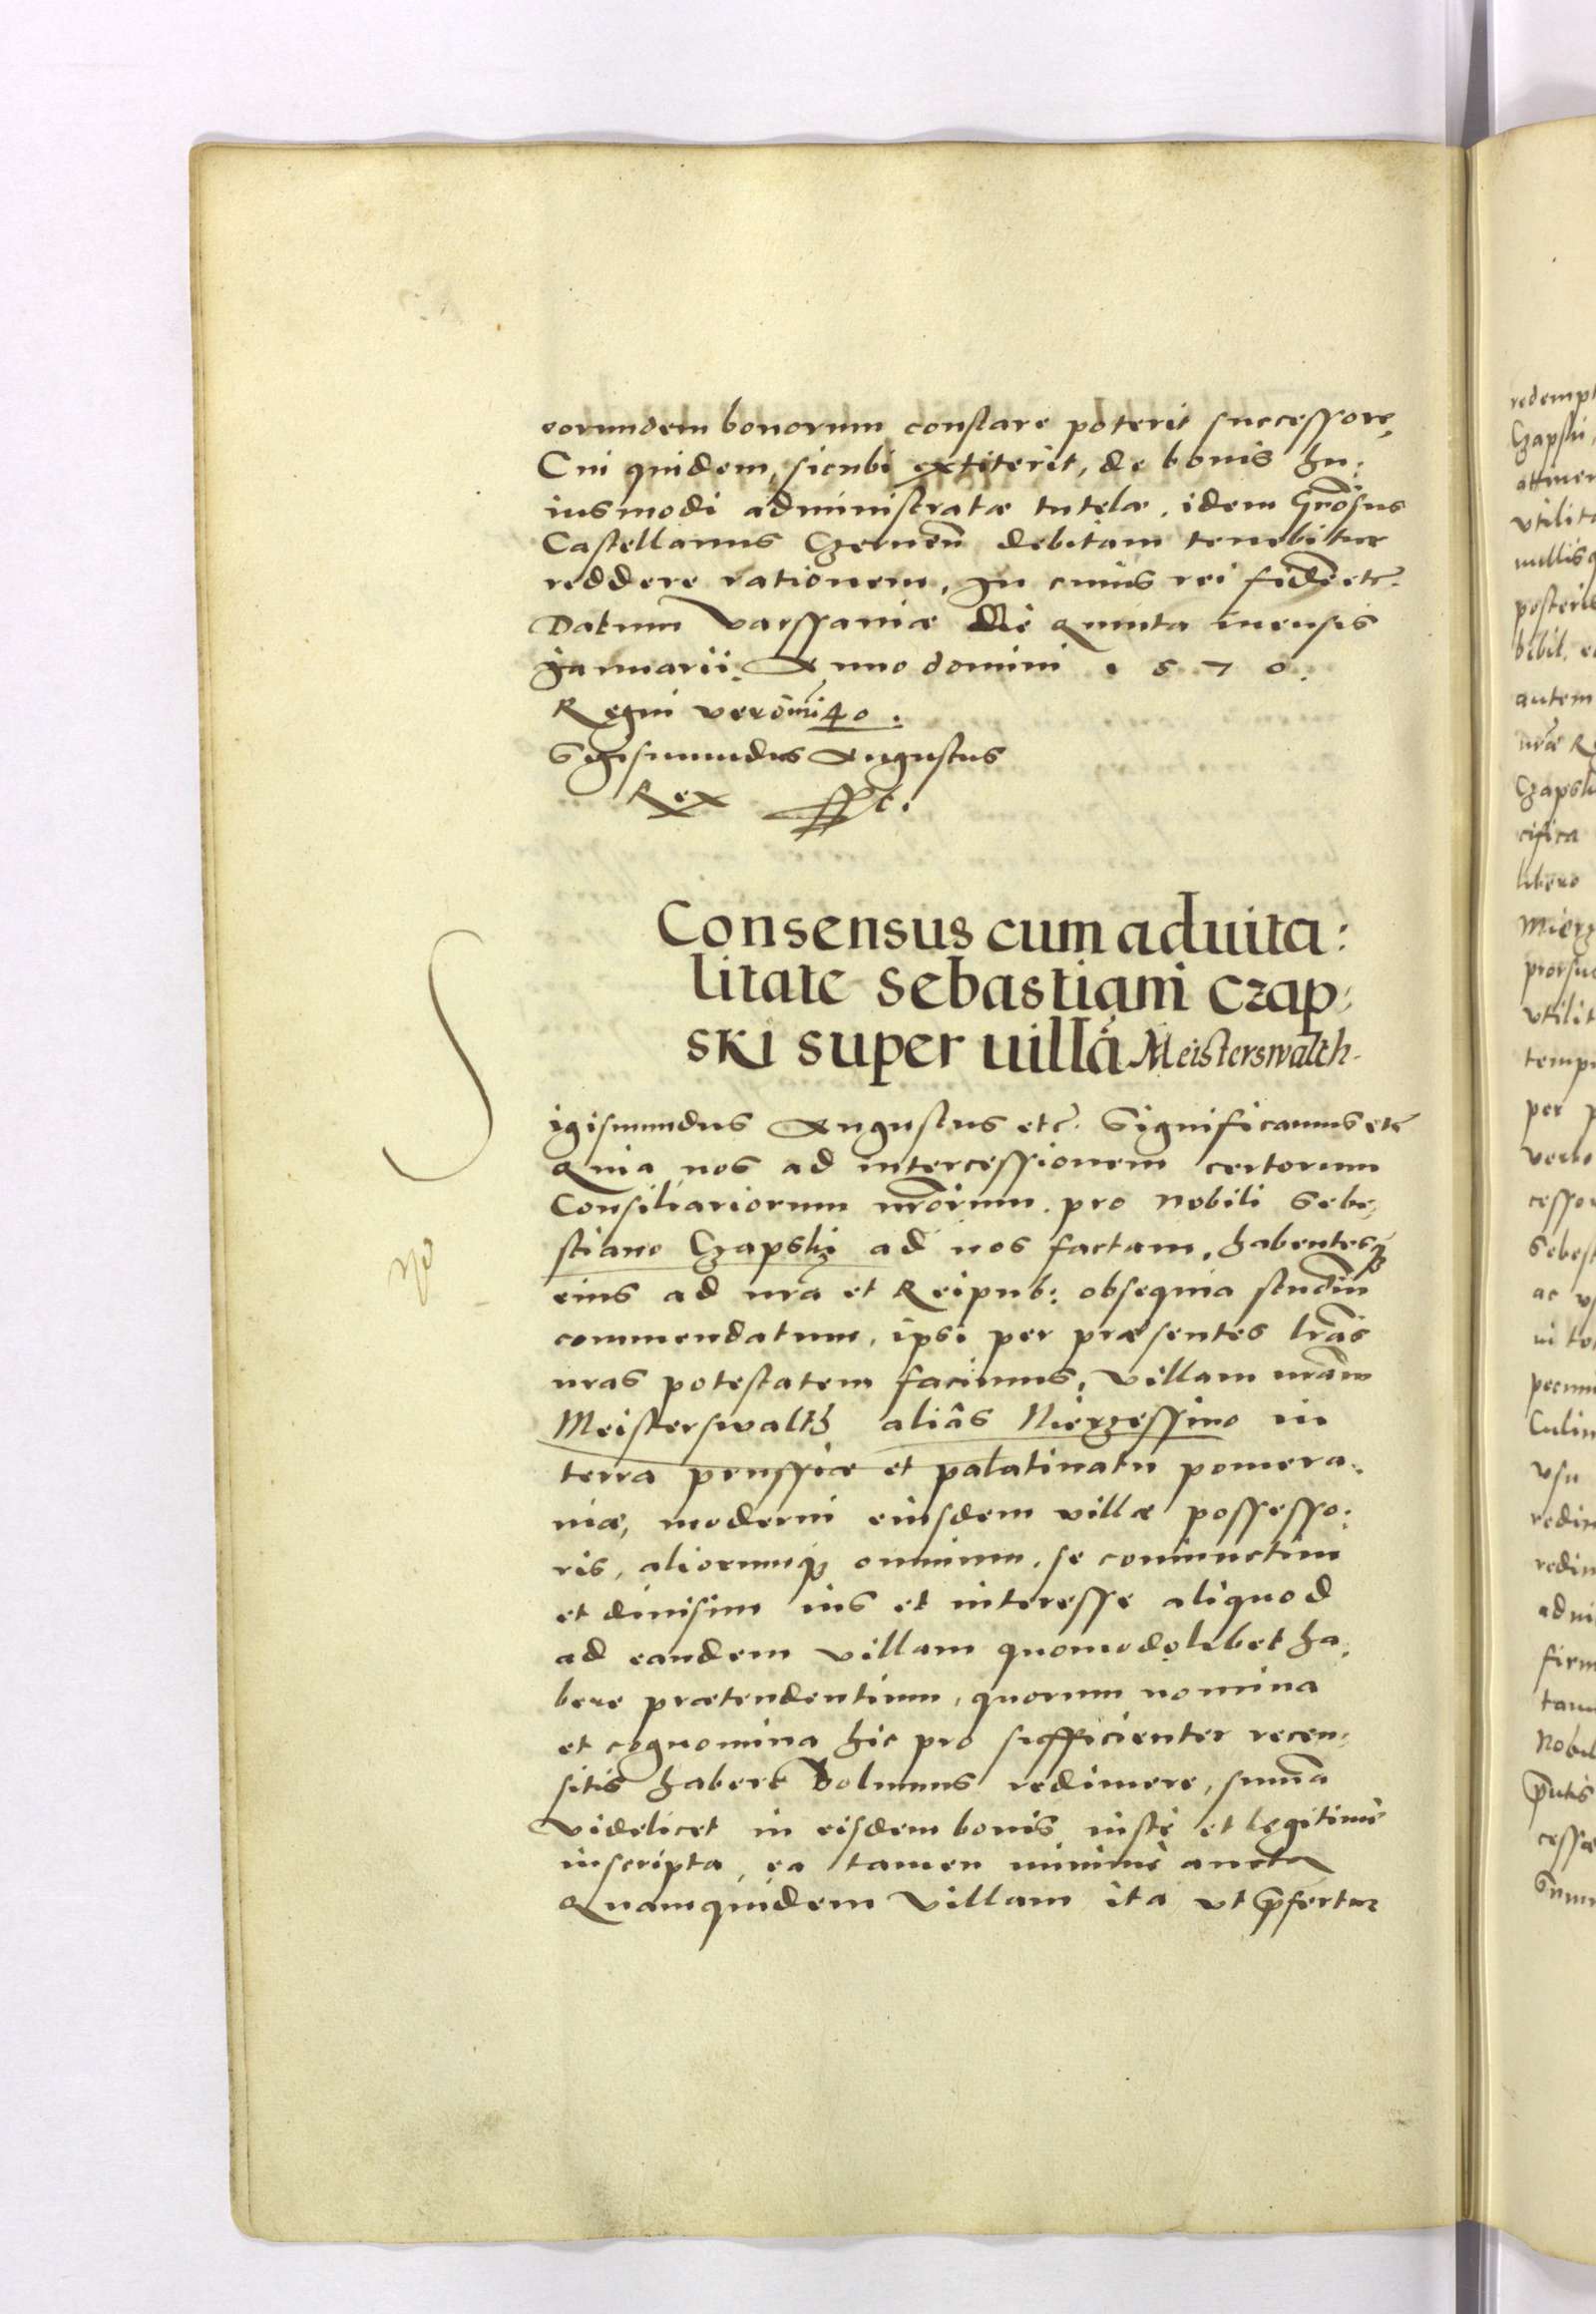 eorundem bonorum constare poterit successore,
Cui quidem, sicubi extiterit, de bonis hu:
iusmodi administratæ tutelæ, idem Gnōsus
Castellanus Czernen̄ debitam tenebitur
reddere rationem, In cuius rei fidē etc.
Datum Varssaviæ die Quinta mensis
Januarii. Anno domini 1570.
Regni vero nr̄i 40.
Sigismundus Augustus
Rex sst.
Consensus cum aduita:
litate Sebastiani Czap:
ski super uillā Meisterswalth.
Sigismundus Augustus etc. Significamus etc
Quia nos ad intercessionem certorum
Consiliariorum nr̄orum pro Nobili Sebe,
stiano Czapski ad nos factam, habentesq₃
eius ad nr̄a et Reipub: obsequia studiū
commendatum, ipsi per præsentes lr̄as
nras potestatem facimus, villam nr̄am
Meisterswalth aliâs Nierzessino in
terra prussiæ et palatinatu pomera:
niæ, moderni eiusdem villæ possesso:
ris, aliorumq₃ omnium, se coniunctim
et diuisim ius et interesse aliquod
ad eandem villam quomodolibet ha:
bere prætendentium, quorum nomina
et cognomina hic pro sufficienter recen:
sitis habere Volumus redimere, summa
videlicet in eisdem bonis iustè et legitimè
inscripta, ea tamen minimè aucta
Quamquidem Villam ita vt p̄fertur
redempt
Czapski,
attinen
vtilit
nullisq
posteri
bebit, e
autem
nr̄æ R
Czapsk
cifica
libero
Mierz
prorsus
vtilit
temp
per p
vero
cesso
Sebest
ac vs
in to
pecuni
Culin
vsu
redim
redim
adui
firm
tam
Nobil
p̄ntis
cessæ